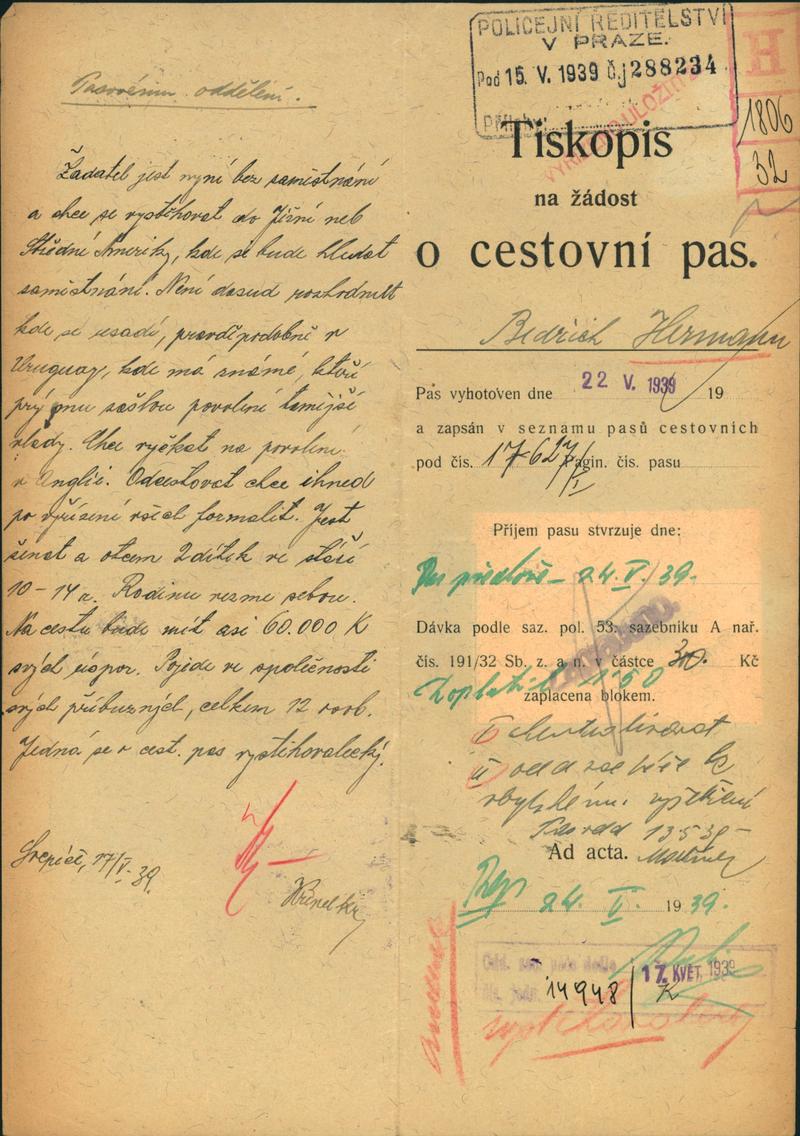 Pasovému oddělení.
Žadatel jest nyní bez zaměstnání
a chce se vystěhovat do Jižní neb
Střední Ameriky, kde si bude hledat
zaměstnání. Není dosud rozhodnut
kde se usadí, pravděpodobně v
Uruguay, kde má známé, kteří
prý mu zašlou povolení tamější
vlády. Chce vyčkat na povolení
v Anglii. Odcestovat chce ihned
po vyřízení všech formalit. Jest
ženat a otcem 2 dítek ve stáří
10-14 r. Rodinu vezme sebou.
Na cestu bude mít asi 60.000 K
svých úspor. Pojede ve společnosti
svých příbuzných, celkem 12 osob.
Jedná se o cest. pas vystěhovalecký.
17/V. 39.
POLICEJNÍ ŘEDITELSTVÍ
V PRAZE.
Pod 15. V. 1939 Čj 288234
H
1806
32
Tiskopis
na žádost
o cestovní pas.
Bedřich Hermann
Pas vyhotoven dne 22 V. 1939 19
a zapsán v seznamu pasů cestovních
pod čís. 17627/I pagin. čís. pasu
Příjem pasu stvrzuje dne:
24. V. 39.
Dávka podle saz. pol. 53. sazebníku A nař.
čís. 191/32 Sb. z. a n. v částce 30. Kč
Doplatil 1.50
zaplacena blokem.
I
II
Ad acta.
24. V. 1939.
17. KVĚT. 1939
14948/K